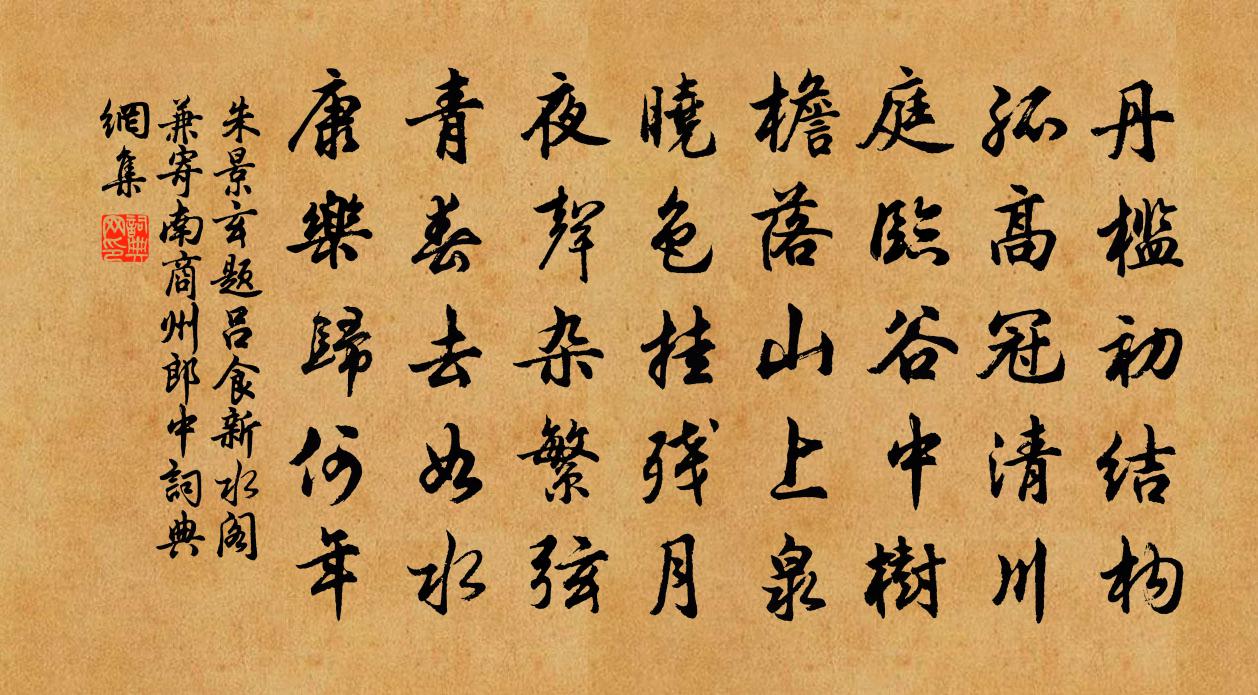 丹檻初结构
孤高冠清川
庭臨谷中樹
檐落山上泉
曉色挂残月
夜聲杂繁弦
青春去如水
康樂歸何年
朱景玄题吕食新水阁
兼寄南商州郎中詞典
網集
詞典
网印